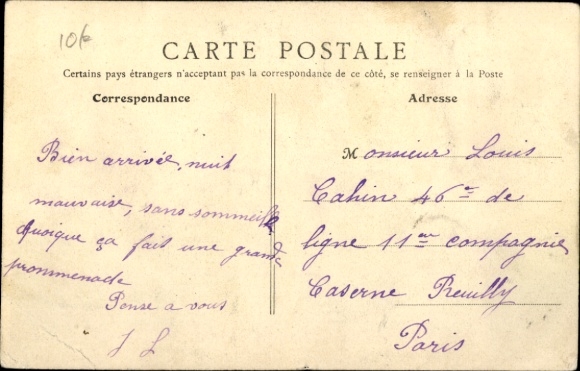 10f
CARTE POSTALE
Certains pays étrangers n'acceptant pas la correspondance de ce côté, se renseigner à la Poste
Correspondance
Bien arrivée, nuit
mauvaise, sans sommeille
quoique ça fait une grande
prommenade
Pense a vous
J L
Adresse
Monsieur Louis
Cahin 46e de
ligne 11em compagnie
Caserne Reuilly
Paris